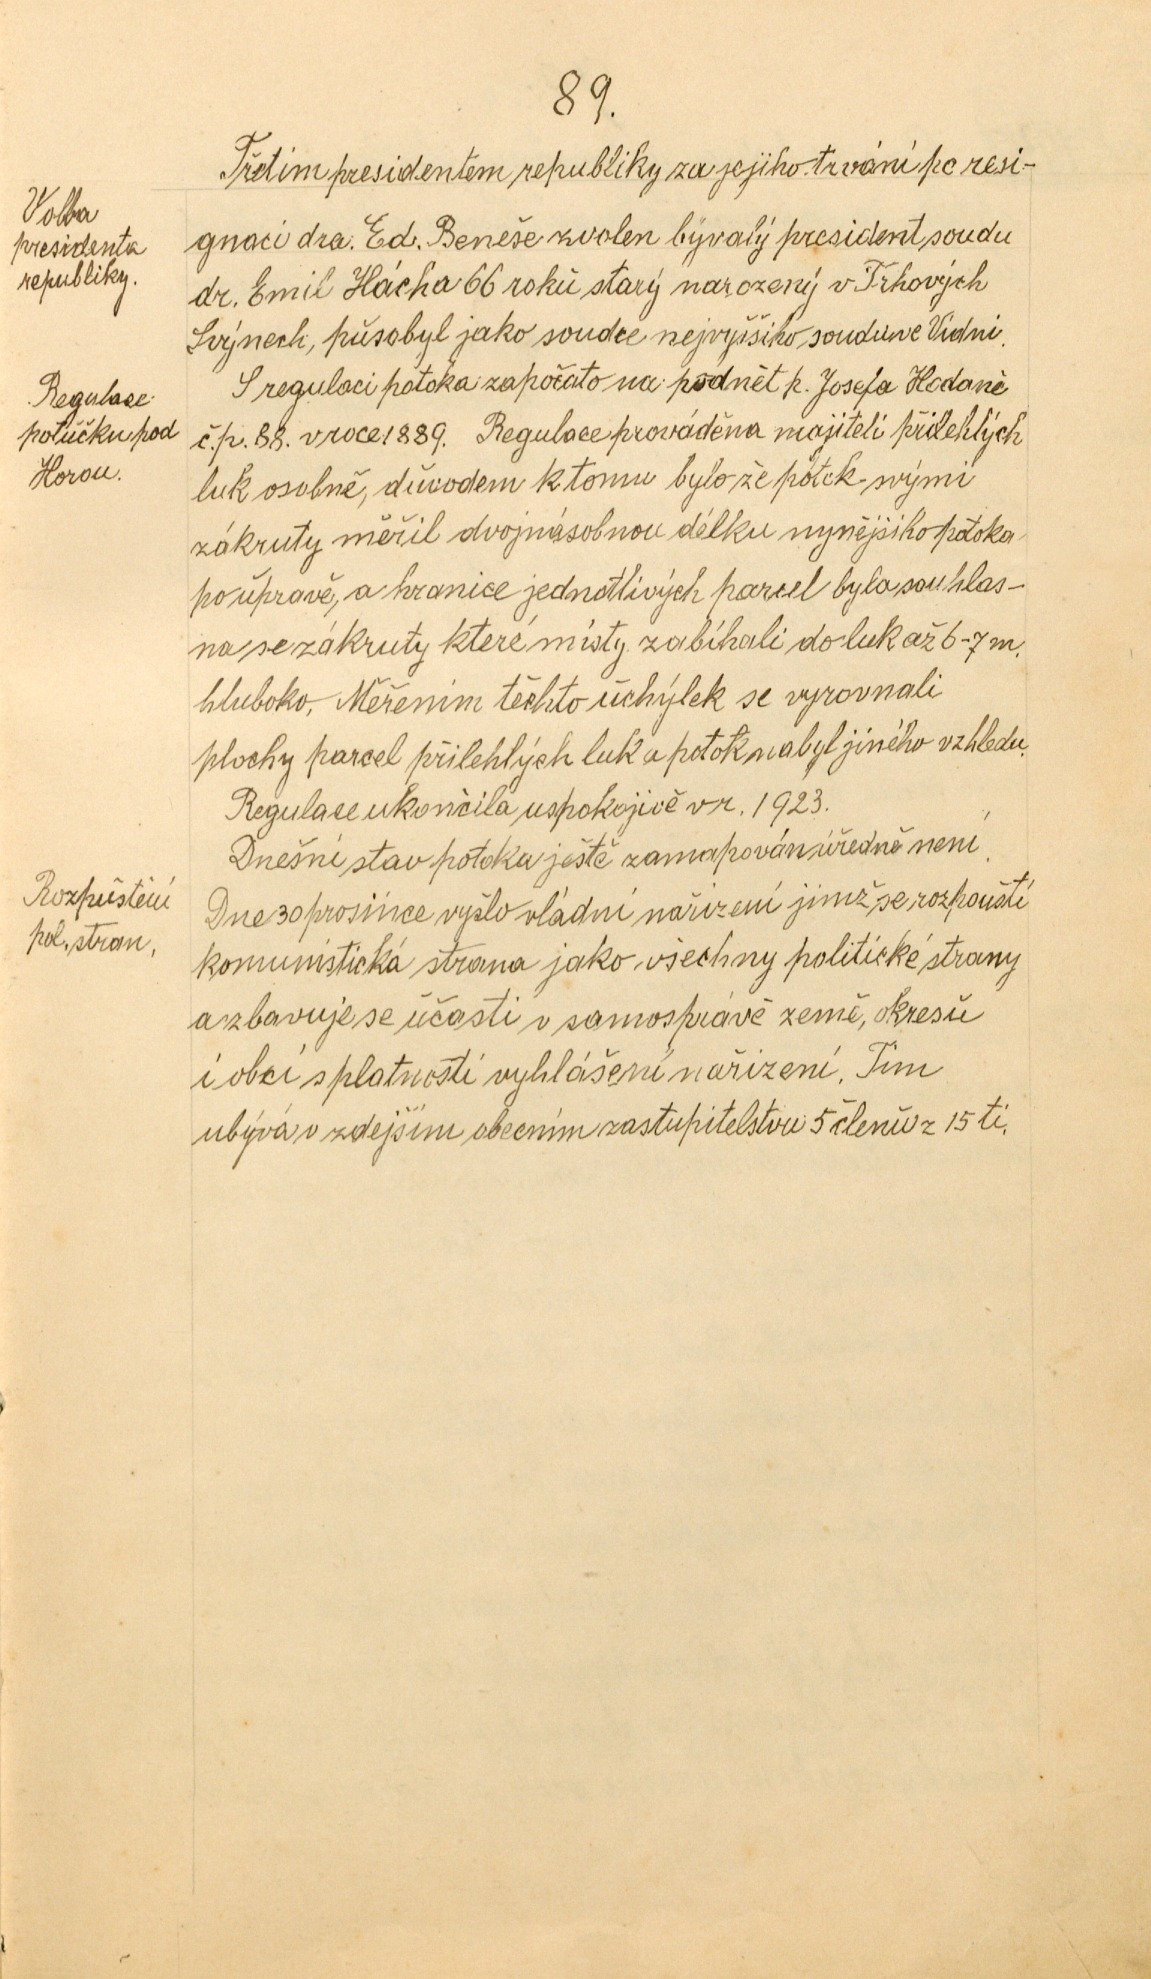 89.
Třetim presidentem republiky za jejiho trvání po resi-
Volba
presidenta
republiky.
gnaci dra. Ed. Beneše zvolen bývalý president soudu
dr. Emil Hácha 66 roků starý narozený v Trhových
Svýnech, působyl jako soudce nejvyššiho soudu ve Vidni.
Regulace
potůčku pod
Horou.
S regulaci potoka započato na podnět p. Josefa Hodaně
č.p. 88. v roce 1889. Regulace prováděna majiteli přilehlých
luk osobně, důvodem k tomu bylo že potok svými
zákruty měřil dvojnásobnou délku nynějšiho potoka
po úpravě, a hranice jednotlivých parcel byla souhlas-
na se zákruty které místy zabíhali do luk až 6-7 m.
hluboko. Měřenim těchto úchýlek se vyrovnali
plochy parcel přilehlých luk a potok nabyl jiného vzhledu.
Regulace ukončila uspokojivě v r. 1923.
Dnešní stav potoka ještě zamapován úředně není.
Rozpuštění
pol. stran.
Dne 30 prosince vyšlo vládní nařízení jimž se rozpouští
komunistická strana jako všechny politické strany
a zbavuje se účasti v samosprávě země, okresů
i obcí s platností vyhlášení nařízení. Tím
ubývá v zdejším obecním zastupitelstvu 5 členů z 15 ti.